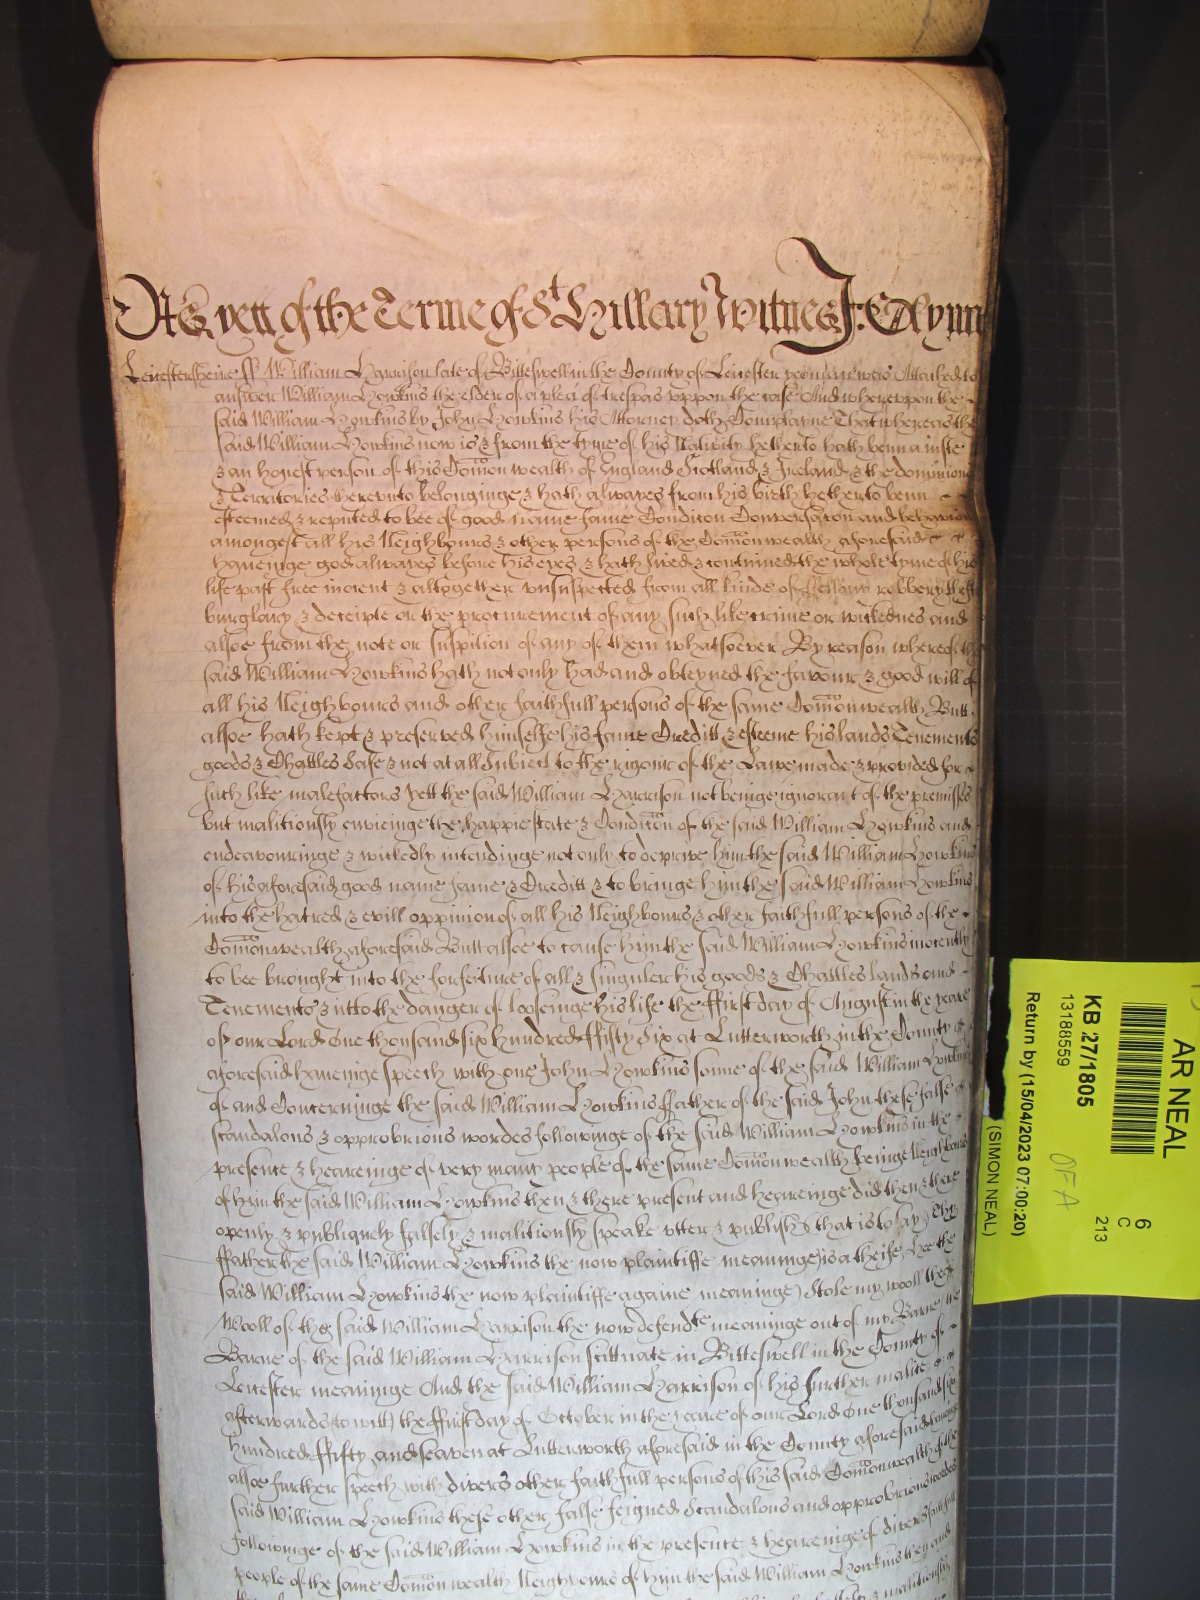 As yett of the Terme of St Hillary Witnes J: Glynn
Leicestersheire ss William Harrison late of Bitteswell in the County of Leicester yeoman was Attached to
answer William Howkins the elder of a plea of trespas uppon the case And whereuppon the
said William Howkins by John Howkins his Attorney doth Complayne That whereas the
said William Howkins now is & from the tyme of his Nativity hetherto hath benn a juste
& an honest person of this Comon wealth of England Scotland & Ireland & the dominions
& Territories thereunto belonginge & hath alwayes from his birth hetherto benn
esteemed & reputed to bee of good name fame Condicon Conversacon and behavior
amongest all his Neighbours & other persons of the Comonwealth aforesaid
haveinge god alwayes before his eyes & hath lived & continued the whole tyme of his
life past free inocent & altogether unsuspected from all kinds of ffellony robbery theft
burglary & deceipte or the procurement of any such like crime or wickednes and
alsoe from the note or suspition of any of them whatsoever By reason whereof the
said William Howkins hath not only had and obteyned the favour & good will of
all his Neighbours and other faithfull persons of the same Comonwealth Butt
alsoe hath kept & preserved himselfe his fame Creditt & esteeme his lands Tenements
goods & Chattles safe & not at all Subiect to the rigour of the Lawe made & provided for
such like malefactors Yett the said William Harrison not beinge ignorant of the premisses
but malitiously envieinge the happie state & Condicon of the said William Howkins and
endeavouringe & wickedly intendinge not only to deprive him the said William Howkins
of his aforesaid good name fame & Creditt & to bringe him the said William Howkins
into the hatred & evill oppinion of all his Neighbours & other faithfull persons of the
Comonwealth aforesaid Butt alsoe to cause him the said William Howkins inocently
to bee brought into the forfeiture of all & singuler his goods & Chattles lands and
Tenements & into the danger of looseinge his life the ffirst day of August in the yeare
of our Lord One thousand six hundred ffifty Six at Lutterworth in the County
aforesaid haveinge speech with one John Howkins sonne of the said William Howkins
of and Concerninge the said William Howkins ffather of the said John these false
scandalous & opprobrious wordes followinge of the said William Howkins in the
presence & heareinge of very many people of the same Comonwealth beinge Neighbours
of him the said William Howkins then & there present and heareinge did then & there
openly & publiquely falsely & malitiously speake utter & publish (that is to say) Thy
ffather (the said William Howkins the now plaintiffe meaninge) is a theife Hee (the
said William Howkins the now plaintiffe againe meaninge) Stole my wooll (the
Wooll of the said William Harrison the now defendte meaninge out of my Barne (the
Barne of the said William Harrison scittuate in Bitteswell in the County of
Leicester meaninge And the said William Harrison of his further malice
afterwards (to witt) the ffirst day of October in the yeare of our Lord One thousand six
hundred ffifty and seaven at Lutterworth aforesaid in the County aforesaid haveinge
alsoe further speech with divers other faithfull persons of this said Comonwealth of the
said William Howkins these other false feigned Scandalous and opprobrious wordes
followinge of the said William Howkins in the presence & heareinge of divers faithfull
people of the same Comonwealth Neighbours of him the said William Howkins then and
AR NEAL
KB 27/1805
13188559
Return by (15/04/2023 07:00:20)
(SIMON NEAL)
6
C
213
OFA